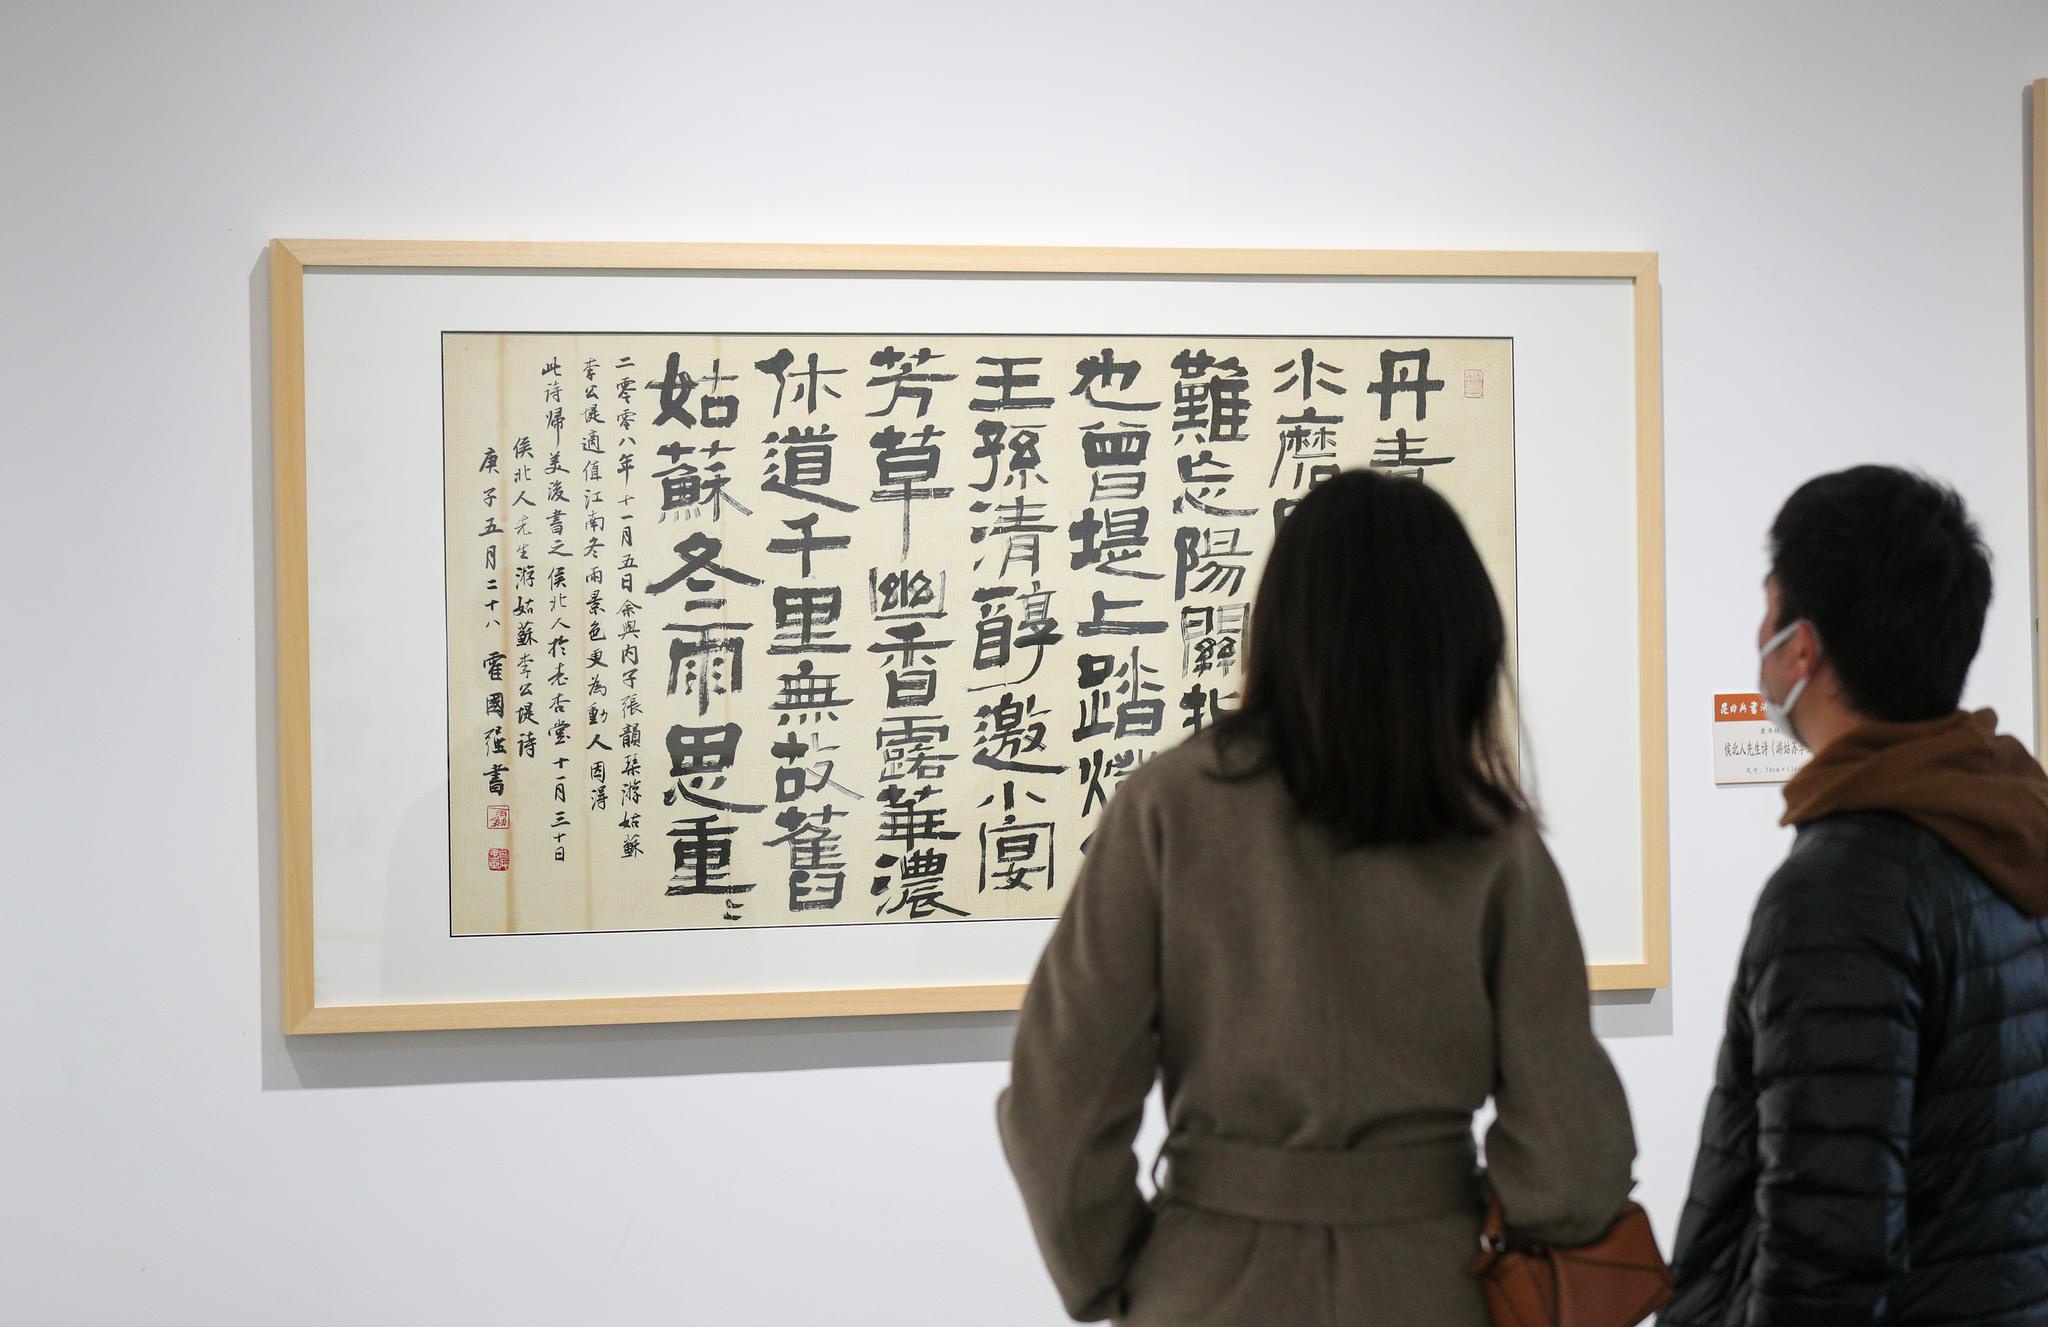 丹青
水磨
難忘陽關
也曾堤上踏
王孫清醇邀小宴
芳草幽香露華濃
休道千里無故舊
姑蘇冬雨思重二
二零零八年十一月五日余與内子張韻琹游姑蘇
李公堤適值江南冬雨景色更為動人因得
此詩歸美後書之侯北人於老杏堂十一月三十日
侯北人先生游姑蘇李公堤詩
庚子五月二十八 霍國強書
侯北人先生诗《游姑苏李
尺寸：78cm×